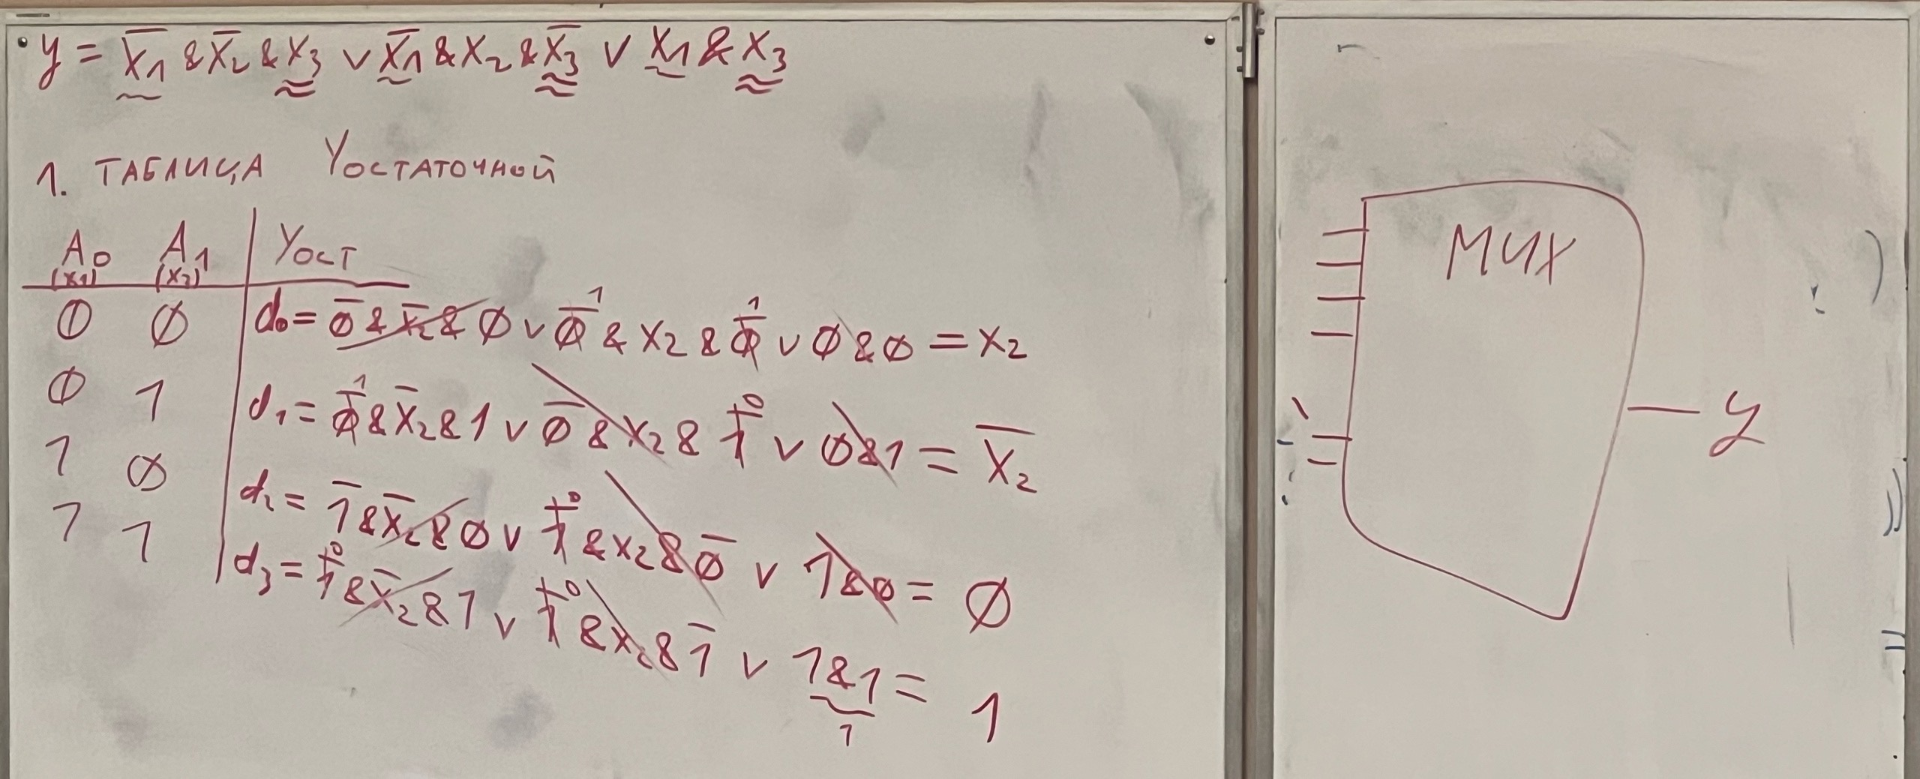 y = x̅₁ & x̅₂ & x₃ ∨ x̅₁ & x₂ & x̅₃ ∨ x₁ & x₃
1. ТАБЛИЦА Yостаточной
A₀ A₁ Yост
(x₁) (x₂)
0 0 d₀ = 0̅ & x̅₂ & 0 ∨ 0̅ 1 & x₂ & 0̅ 1 ∨ 0 & 0 = x₂
0 1 d₁ = 0̅ 1 & x̅₂ & 1 ∨ 0̅ & x₂ & 1̅ 0 ∨ 0 & 1 = x̅₂
1 0 d₂ = 1̅ & x̅₂ & 0 ∨ 1̅ 0 & x₂ & 0̅ ∨ 1 & 0 = 0
1 1 d₃ = 1̅ 0 & x̅₂ & 1 ∨ 1̅ 0 & x₂ & 1̅ ∨ 1 & 1 = 1
1
МИХ
y